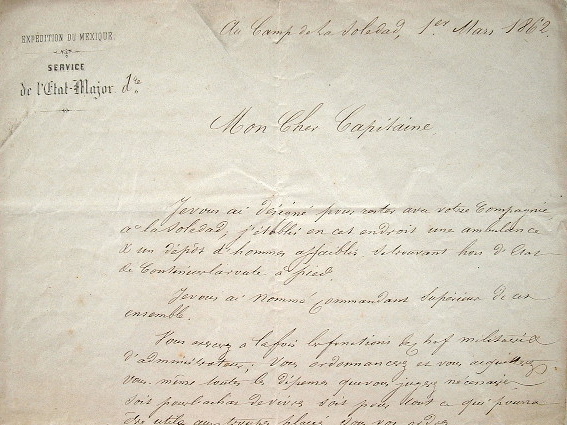 Au Camp de la Soledad, 1er Mars 1862.
EXPÉDITION DU MEXIQUE.
SERVICE
de l'État-Major Gle.
Mon Cher Capitaine,
Je vous ai désigné pour rester avec votre Compagnie,
à la Soledad, j'établis en cet endroit une ambulance
& un dépôt d'hommes affaiblis se trouvant hors d'État
de Continuer la route à pied.
Je vous ai nommé Commandant Supérieur de cet
ensemble.
Vous exercez à la fois les fonctions de chef militaire &
d'administrateur; Vous ordonnancerez et vous acquitterez
vous même toutes les dépenses que vous jugerez nécessaires
soit pour l'achat de vivres soit pour tout ce qui pourra
être utile aux troupes placées sous vos ordres